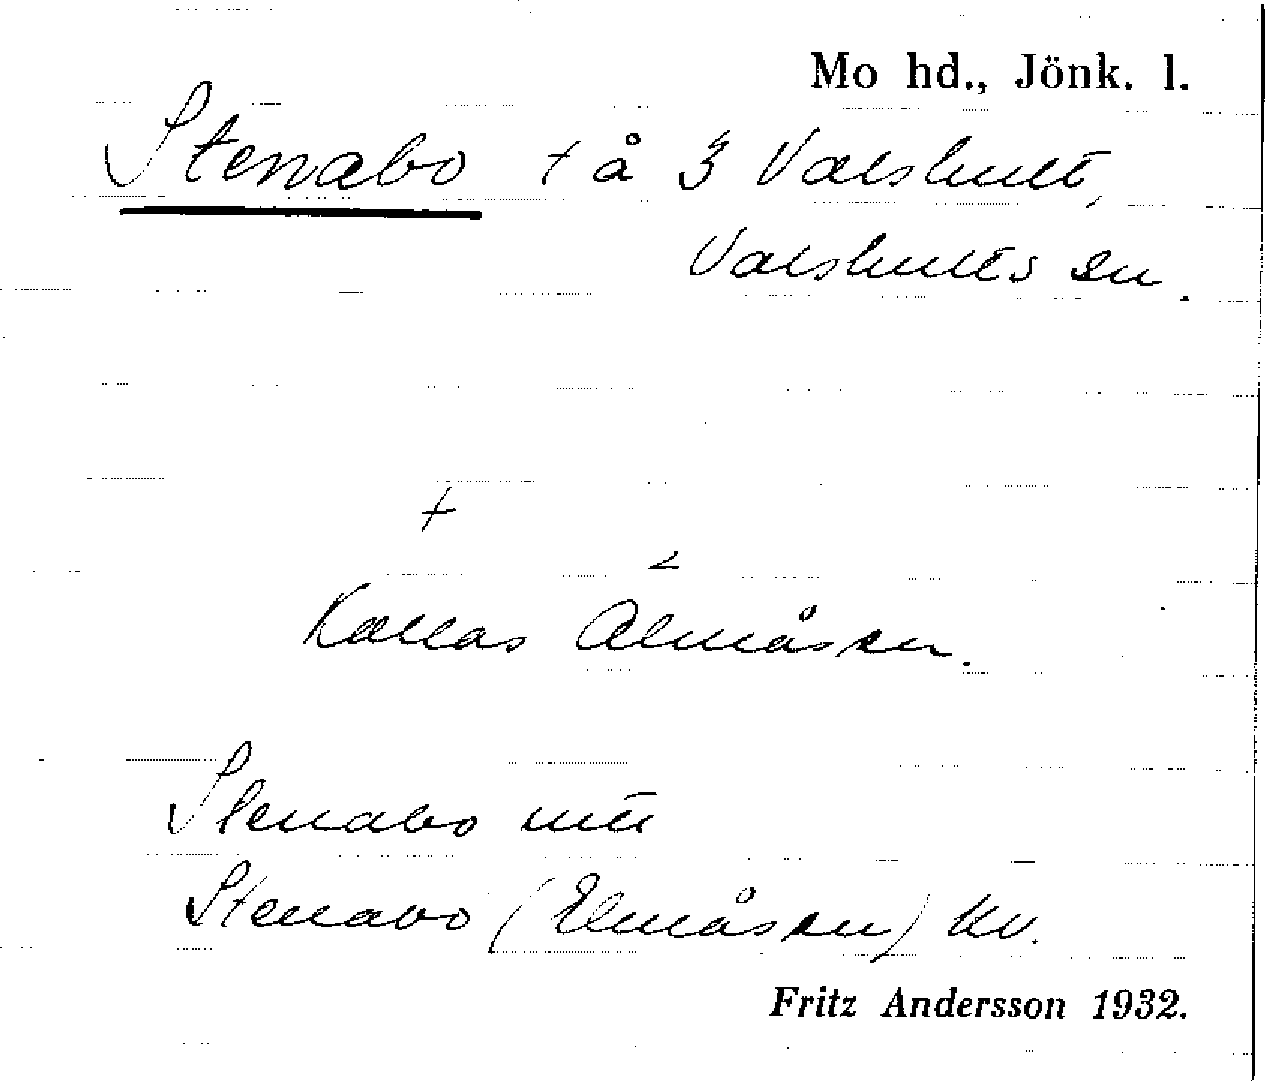 Mo hd., Jönk. l.
Stenabo † å 3 Valshult,
Valshults sn.
†
Kallas Almåsen.
Stenabo mtl
Stenabo (Elmåsen) kv.
Fritz Andersson 1932.